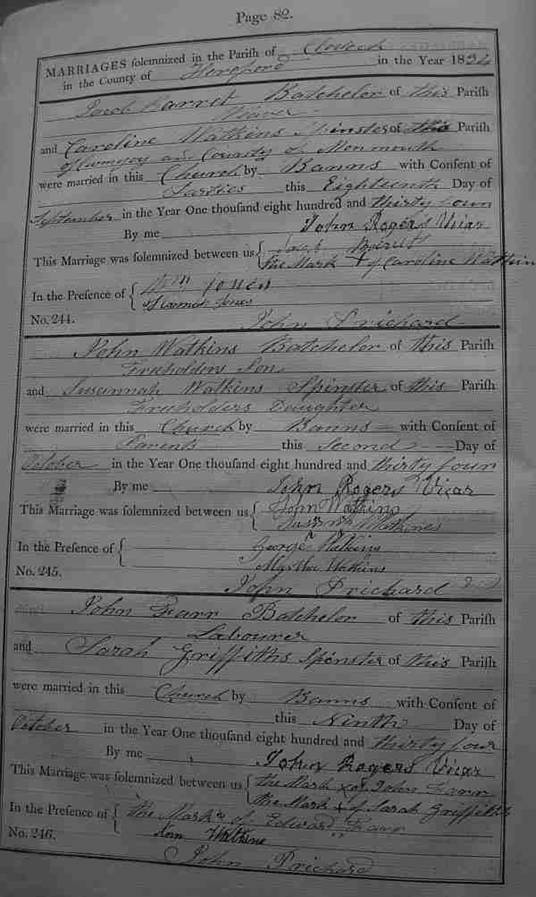 Page 82.
MARRIAGES solemnized in the Parish of Clodock
in the County of Hereford in the Year 1834
Jacob Barret Batchelor of this Parish
Weaver
and Caroline Watkins Spinster of the Parish
of Cwmyoy and County of Monmouth
were married in this Church by Banns with Consent of
Parties this Eighteenth Day of
September in the Year One thousand eight hundred and thirty four
By me John Rogers Vicar
This Marriage was solemnized between us
The Mark + of Caroline Watkin
In the Presence of Wm Jones
Jones
No. 244. John Prichard
John Watkins Batchelor of this Parish
Freeholders Son
and Susannah Watkins Spinster of this Parish
Freeholders Daughter
were married in this Church by Banns with Consent of
Parents this Second Day of
October in the Year One thousand eight hundred and thirty four
By me John Rogers Vicar
This Marriage was solemnized between us John Watkins
Watkins
In the Presence of George Watkins
Martha Watkins
No. 245. John Prichard
John Farr Batchelor of this Parish
Labourer
and Sarah Griffiths Spinster of this Parish
were married in this Church by Banns with Consent of
this Ninth Day of
October in the Year One thousand eight hundred and thirty four
By me John Rogers Vicar
This Marriage was solemnized between us the Mark x of John Farr
the Mark x of Sarah Griffiths
In the Presence of the Mark of Edward Farr
Ann Watkins
No. 246. John Prichard